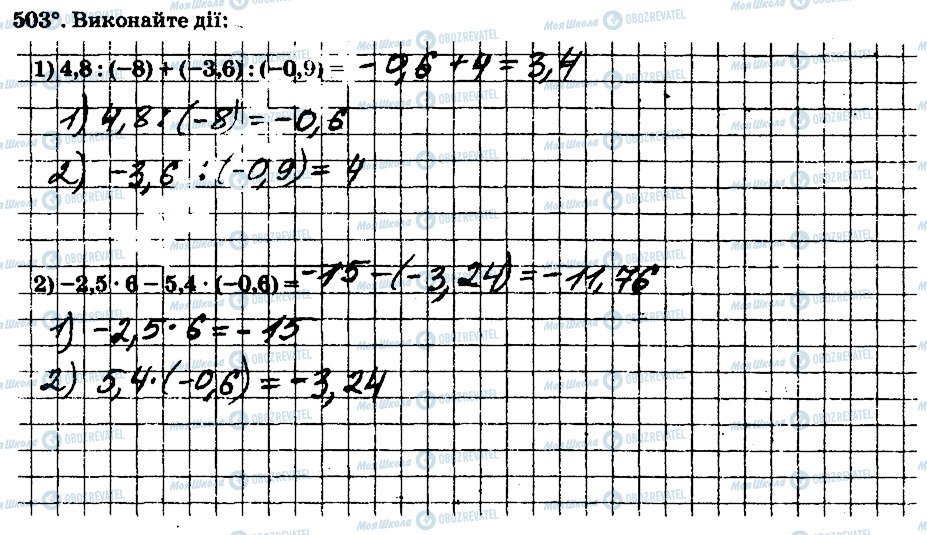 503°. Виконайте дії:
1) 4,8 : (−8) + (−3,6) : (−0,9) = −0,6 + 4 = 3,4
1) 4,8 : (−8) = −0,6
2) −3,6 : (−0,9) = 4
2) −2,5 · 6 − 5,4 · (−0,6) = −15 − (−3,24) = −11,76
1) −2,5 · 6 = −15
2) 5,4 · (−0,6) = −3,24
Моя Школа OBOZREVATEL